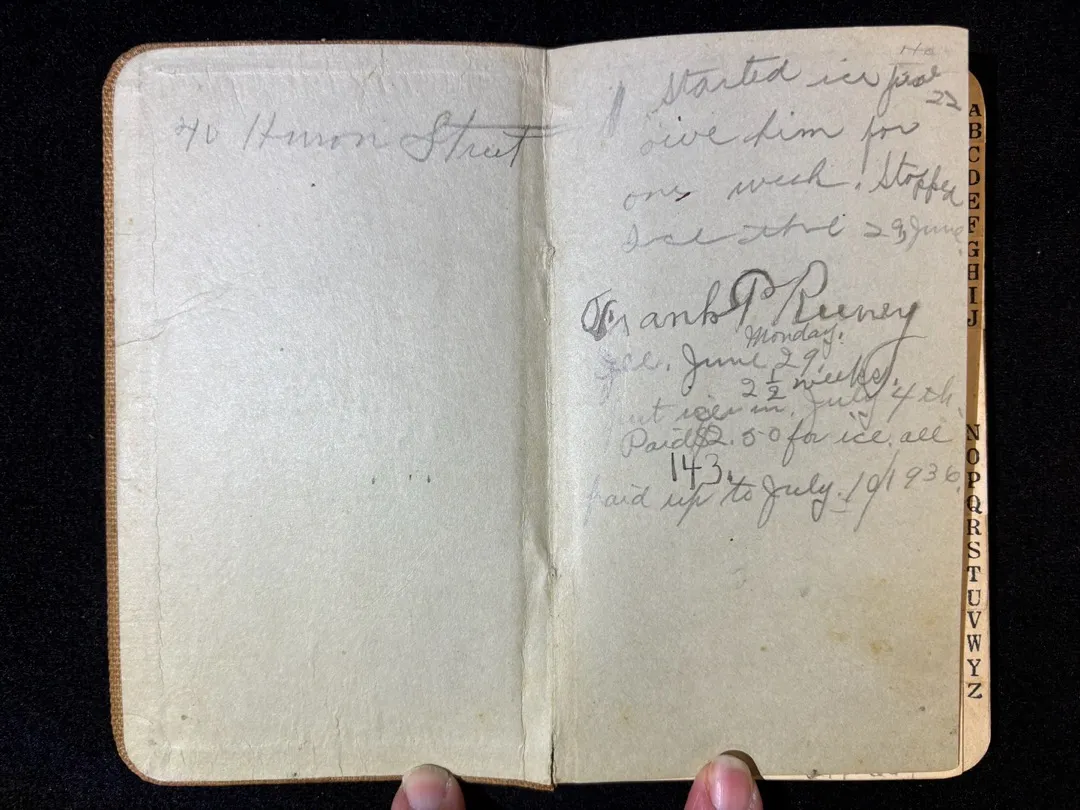 40 Huron Street
Started ice June
22
give him for
one week. Stopped
Ice the 29, June
Frank P Reeney
Monday.
Ice. June 29.
2 1/2 weeks.
ut ice in. July 4th
Paid $2.50 for ice. all
143.
paid up to July. 10/1936.
A
B
C
D
E
F
G
H
I
J
N
O
P
Q
R
S
T
U
V
W
Y
Z